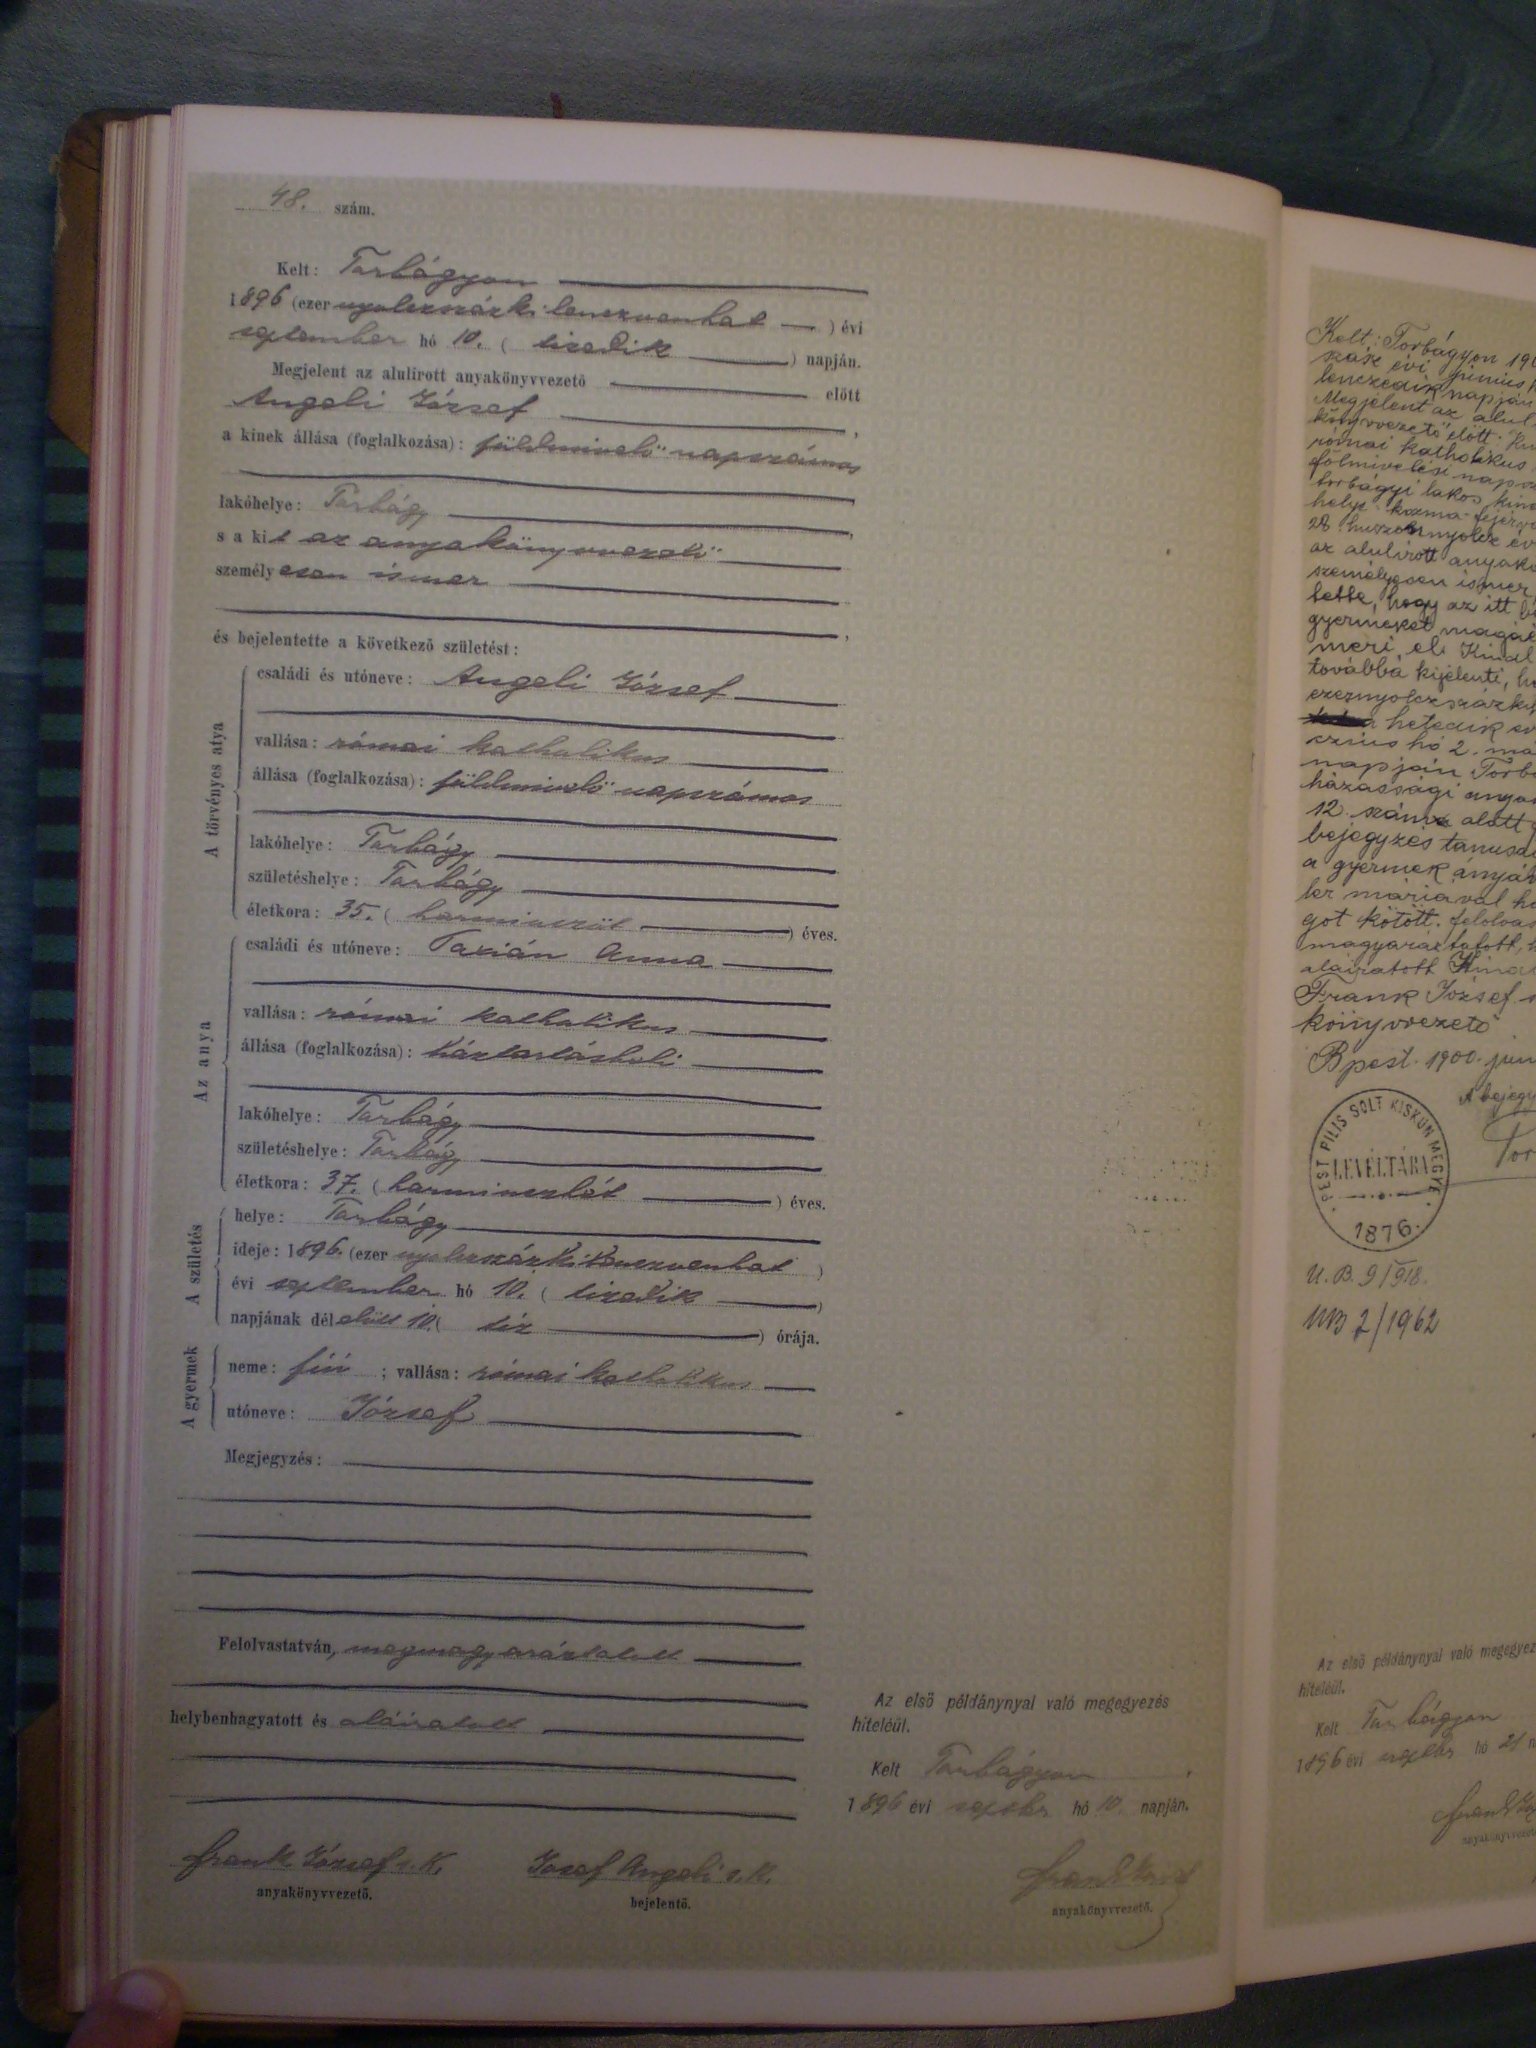 48. szám.
Kelt: Torbágyon
1896 (ezer nyolczszázkilenczvenhat) évi
september hó 10. (tizedik) napján.
Megjelent az alulirott anyakönyvvezető előtt
Angeli József,
a kinek állása (foglalkozása): földmivelő napszámos
lakóhelye: Torbágy,
s a kit az anyakönyvvezető
személyesen ismer,
és bejelentette a következő születést:
A törvényes atya
családi és utóneve: Angeli József
vallása: római katholikus
állása (foglalkozása): földmivelő napszámos
lakóhelye: Torbágy
születéshelye: Torbágy
életkora: 35. (harminczöt) éves.
Az anya
családi és utóneve: Anna
vallása: római katholikus
állása (foglalkozása): háztartásbeli
lakóhelye: Torbágy
születéshelye: Torbágy
életkora: 37. (harminczhét) éves.
A születés
helye: Torbágy
ideje: 1896. (ezer nyolczszázkilenczvenhat)
évi september hó 10. (tizedik)
napjának délelőtt 10. (tíz) órája.
A gyermek
neme: fiú; vallása: római katholikus
utóneve: József
Megjegyzés:
Felolvastatván, megmagyaráztatott
helybenhagyatott és aláiratott
Frank József s. k.
anyakönyvvezető.
Josef Angeli s. k.
bejelentő.
Az első példánynyal való megegyezés
hiteléül.
Kelt Torbágyon
1896 évi septbr hó 10. napján.
Frank József
anyakönyvvezető.
Kelt: Torbágyon
évi junius
napján
Megjelent az
könyvvezető előtt
római katholikus
napsz
torbágyi lakos
28. huszonnyolcz év
az alulirott anyakö
személyesen ismer,
hogy az itt
gyermeket magáé
továbbá kijelenti, h
hetedik év
hó 2. má
napján Torb
házassági anya
12. szám alatt
bejegyzés tanusá
a gyermek anyjáv
ler máriával há
got kötött. felolvas
magyaráztatott, h
aláiratott
Frank József s
könyvvezető
Bpest. 1900. jun
A bejegy
PEST PILIS SOLT KISKUN MEGYE
LEVÉLTÁRA
1876.
U. B. 9/918.
UB 2/1962
Az első példánynyal való megegyez
hiteléül.
Kelt Torbágyon
1896 évi septbr hó 21 n
anyakönyvvezető